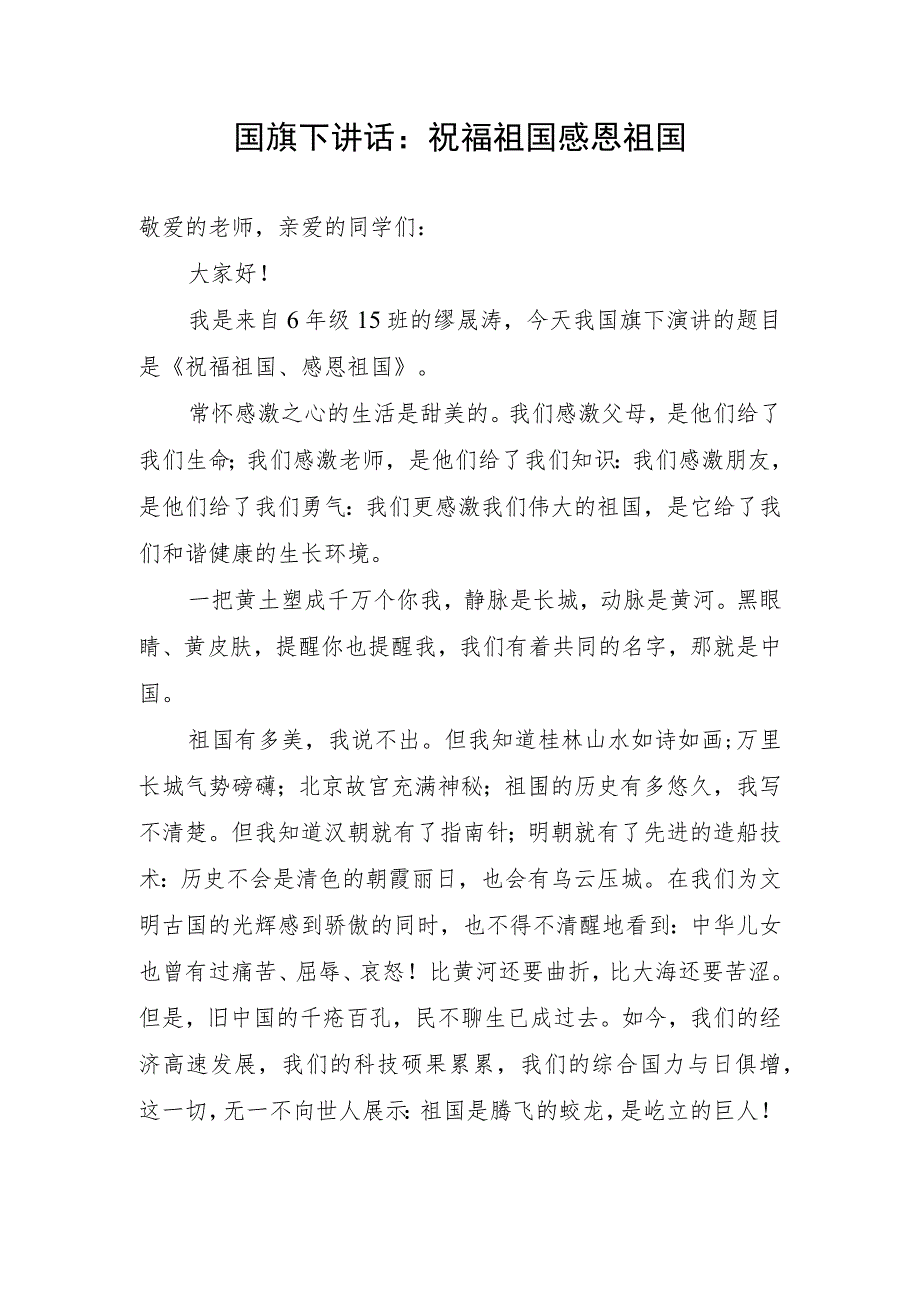 国旗下讲话：祝福祖国感恩祖国
敬爱的老师，亲爱的同学们：
大家好！
我是来自6年级15班的缪晟涛，今天我国旗下演讲的题目
是《祝福祖国、感恩祖国》。
常怀感激之心的生活是甜美的。我们感激父母，是他们给了
我们生命；我们感激老师，是他们给了我们知识：我们感激朋友，
是他们给了我们勇气：我们更感激我们伟大的祖国，是它给了我
们和谐健康的生长环境。
一把黄土塑成千万个你我，静脉是长城，动脉是黄河。黑眼
睛、黄皮肤，提醒你也提醒我，我们有着共同的名字，那就是中
国。
祖国有多美，我说不出。但我知道桂林山水如诗如画；万里
长城气势磅礴；北京故宫充满神秘；祖围的历史有多悠久，我写
不清楚。但我知道汉朝就有了指南针；明朝就有了先进的造船技
术：历史不会是清色的朝霞丽日，也会有乌云压城。在我们为文
明古国的光辉感到骄傲的同时，也不得不清醒地看到：中华儿女
也曾有过痛苦、屈辱、哀怒！比黄河还要曲折，比大海还要苦涩。
但是，旧中国的千疮百孔，民不聊生已成过去。如今，我们的经
济高速发展，我们的科技硕果累累，我们的综合国力与日俱增，
这一切，无一不向世人展示：祖国是腾飞的蛟龙，是屹立的巨人！